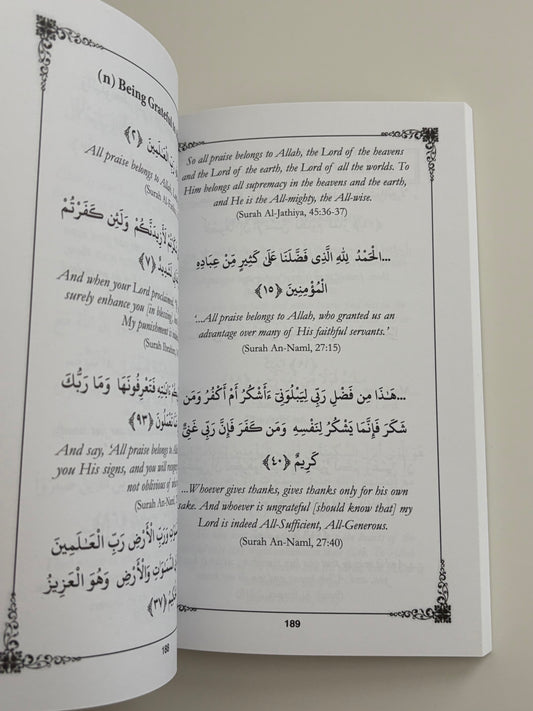 (n) Being Grateful
الْعَالَمِينَ ﴿٢﴾
All praise belongs to Allah,
(Surah Al-Fa
لَأَزِيدَنَّكُمْ وَلَئِن كَفَرْتُمْ
﴿٧﴾
And when your Lord proclaimed,
surely enhance you [in blessing],
My punishment is
(Surah Ibrahim,
فَتَعْرِفُونَهَا وَمَا رَبُّكَ
تَعْمَلُونَ ﴿٩٣﴾
And say, ‘All praise belongs to
you His signs, and you will recog
not oblivious of
(Surah An-Naml,
وَرَبِّ الْأَرْضِ رَبِّ الْعَـٰلَمِينَ
السَّمَـٰوَٰتِ وَالْأَرْضِ وَهُوَ الْعَزِيزُ
﴿٣٧﴾
188
So all praise belongs to Allah, the Lord of the heavens
and the Lord of the earth, the Lord of all the worlds. To
Him belongs all supremacy in the heavens and the earth,
and He is the All-mighty, the All-wise.
(Surah Al-Jathiya, 45:36-37)
...الْحَمْدُ لِلَّهِ الَّذِى فَضَّلَنَا عَلَىٰ كَثِيرٍ مِّنْ عِبَادِهِ
الْمُؤْمِنِينَ ﴿١٥﴾
‘...All praise belongs to Allah, who granted us an
advantage over many of His faithful servants.’
(Surah An-Naml, 27:15)
...هَـٰذَا مِن فَضْلِ رَبِّى لِيَبْلُوَنِىٓ ءَأَشْكُرُ أَمْ أَكْفُرُ وَمَن
شَكَرَ فَإِنَّمَا يَشْكُرُ لِنَفْسِهِ وَمَن كَفَرَ فَإِنَّ رَبِّى غَنِىٌّ
كَرِيمٌ ﴿٤٠﴾
...Whoever gives thanks, gives thanks only for his own
sake. And whoever is ungrateful [should know that] my
Lord is indeed All-Sufficient, All-Generous.
(Surah An-Naml, 27:40)
189